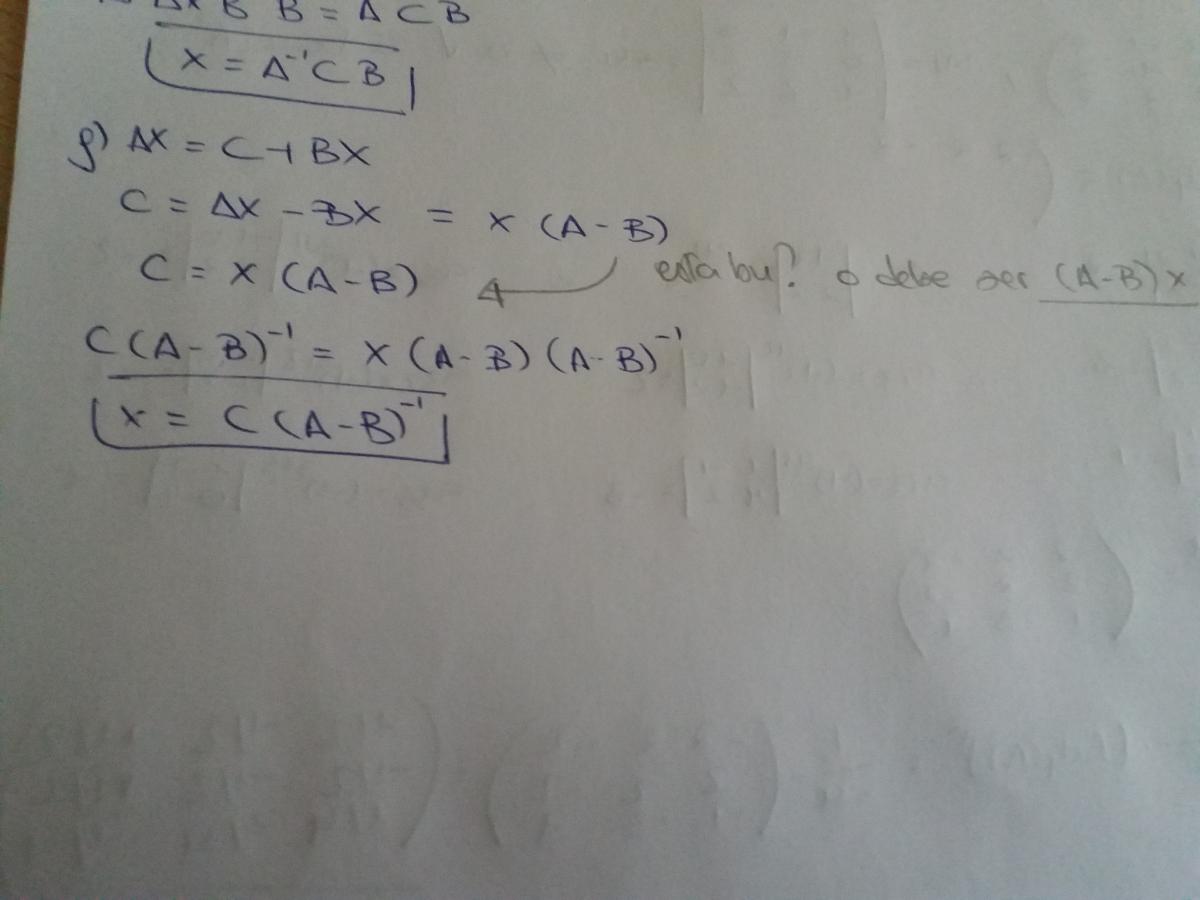 AX B B = A C B
X = A⁻¹ C B
f) AX = C + BX
C = AX - BX = X (A - B)
C = X (A - B) esta bu? o debe ser (A-B) X
C (A - B)⁻¹ = X (A - B) (A - B)⁻¹
X = C (A - B)⁻¹